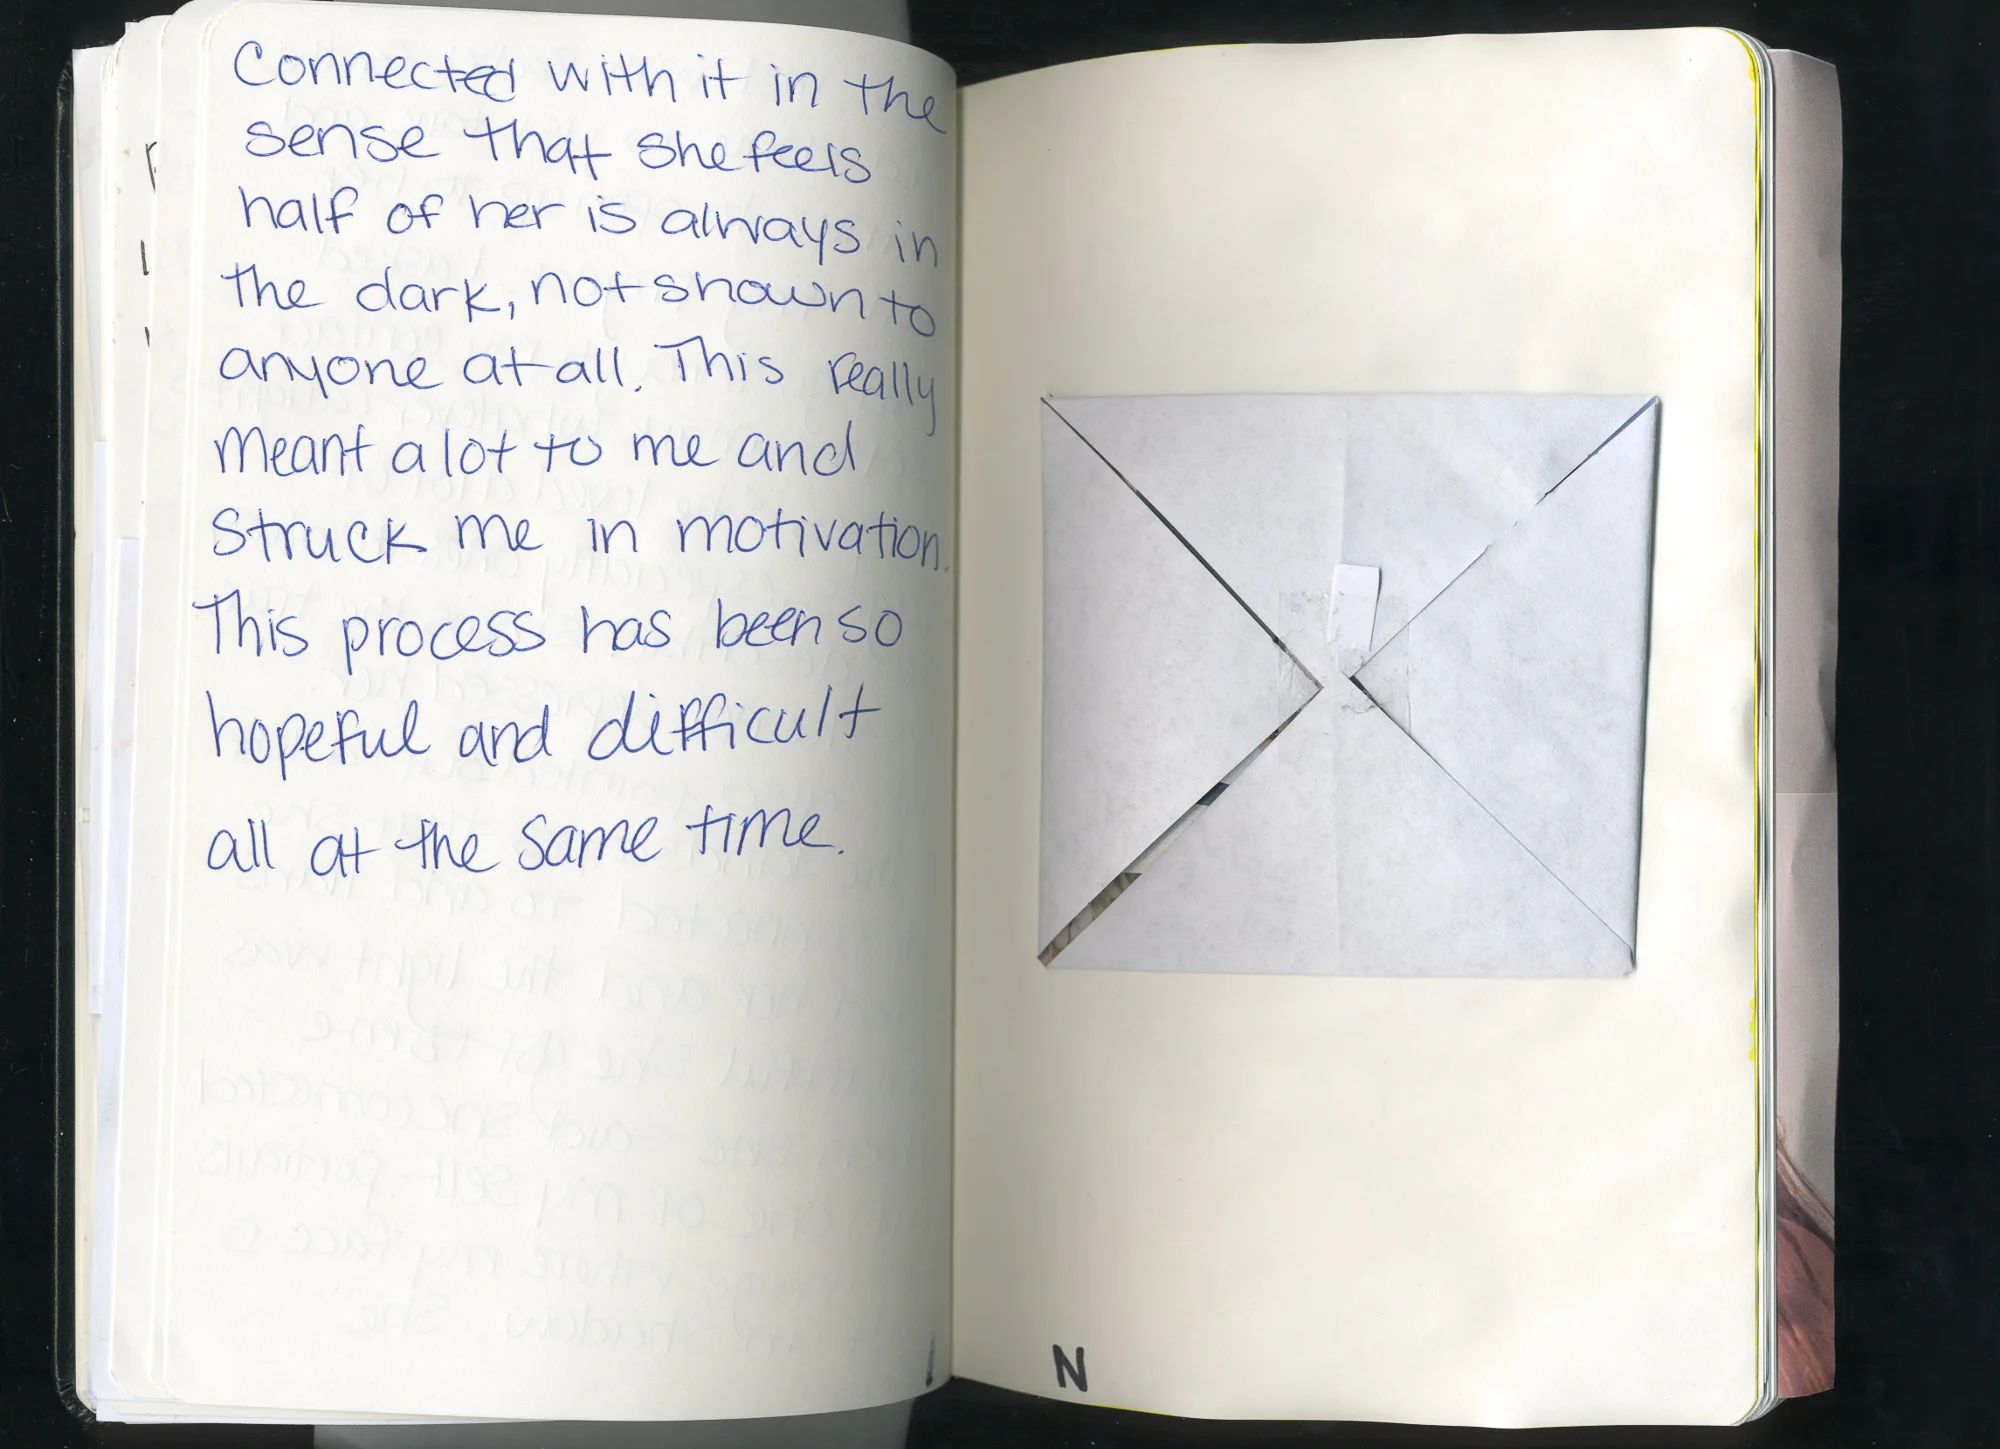 Connected with it in the
sense that she feels
half of her is always in
the dark, not shown to
anyone at all. This really
meant a lot to me and
struck me in motivation.
This process has been so
hopeful and difficult
all at the same time.
N